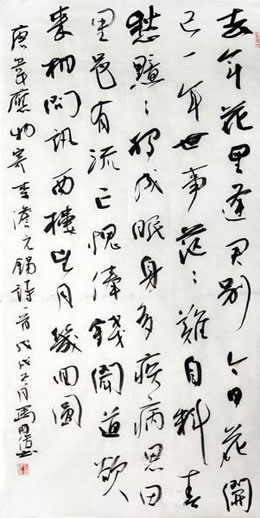 去年花里逢君别今日花開
已一年世事茫々難自料春
愁黯々獨成眠身多疾病思田
里邑有流亡愧俸錢聞道欲
來相問訊西樓望月幾回圓
唐韋應物寄李儋元錫詩一首戊戌